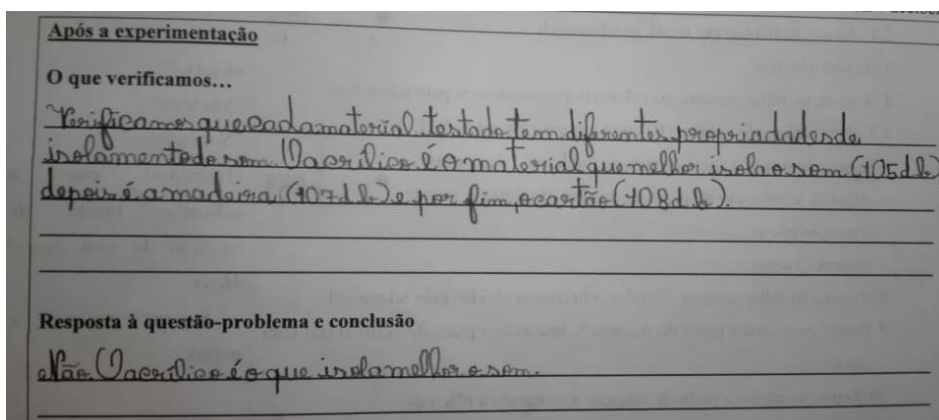 Após a experimentação
O que verificamos...
Verificamos que cada material testado tem diferentes propriedades de
isolamento do som. O acrílico é o material que melhor isola o som (105db)
depois é a madeira (107db) e por fim, o cartão (108db).
Resposta à questão-problema e conclusão
Não. O acrílico é o que isola melhor o som.